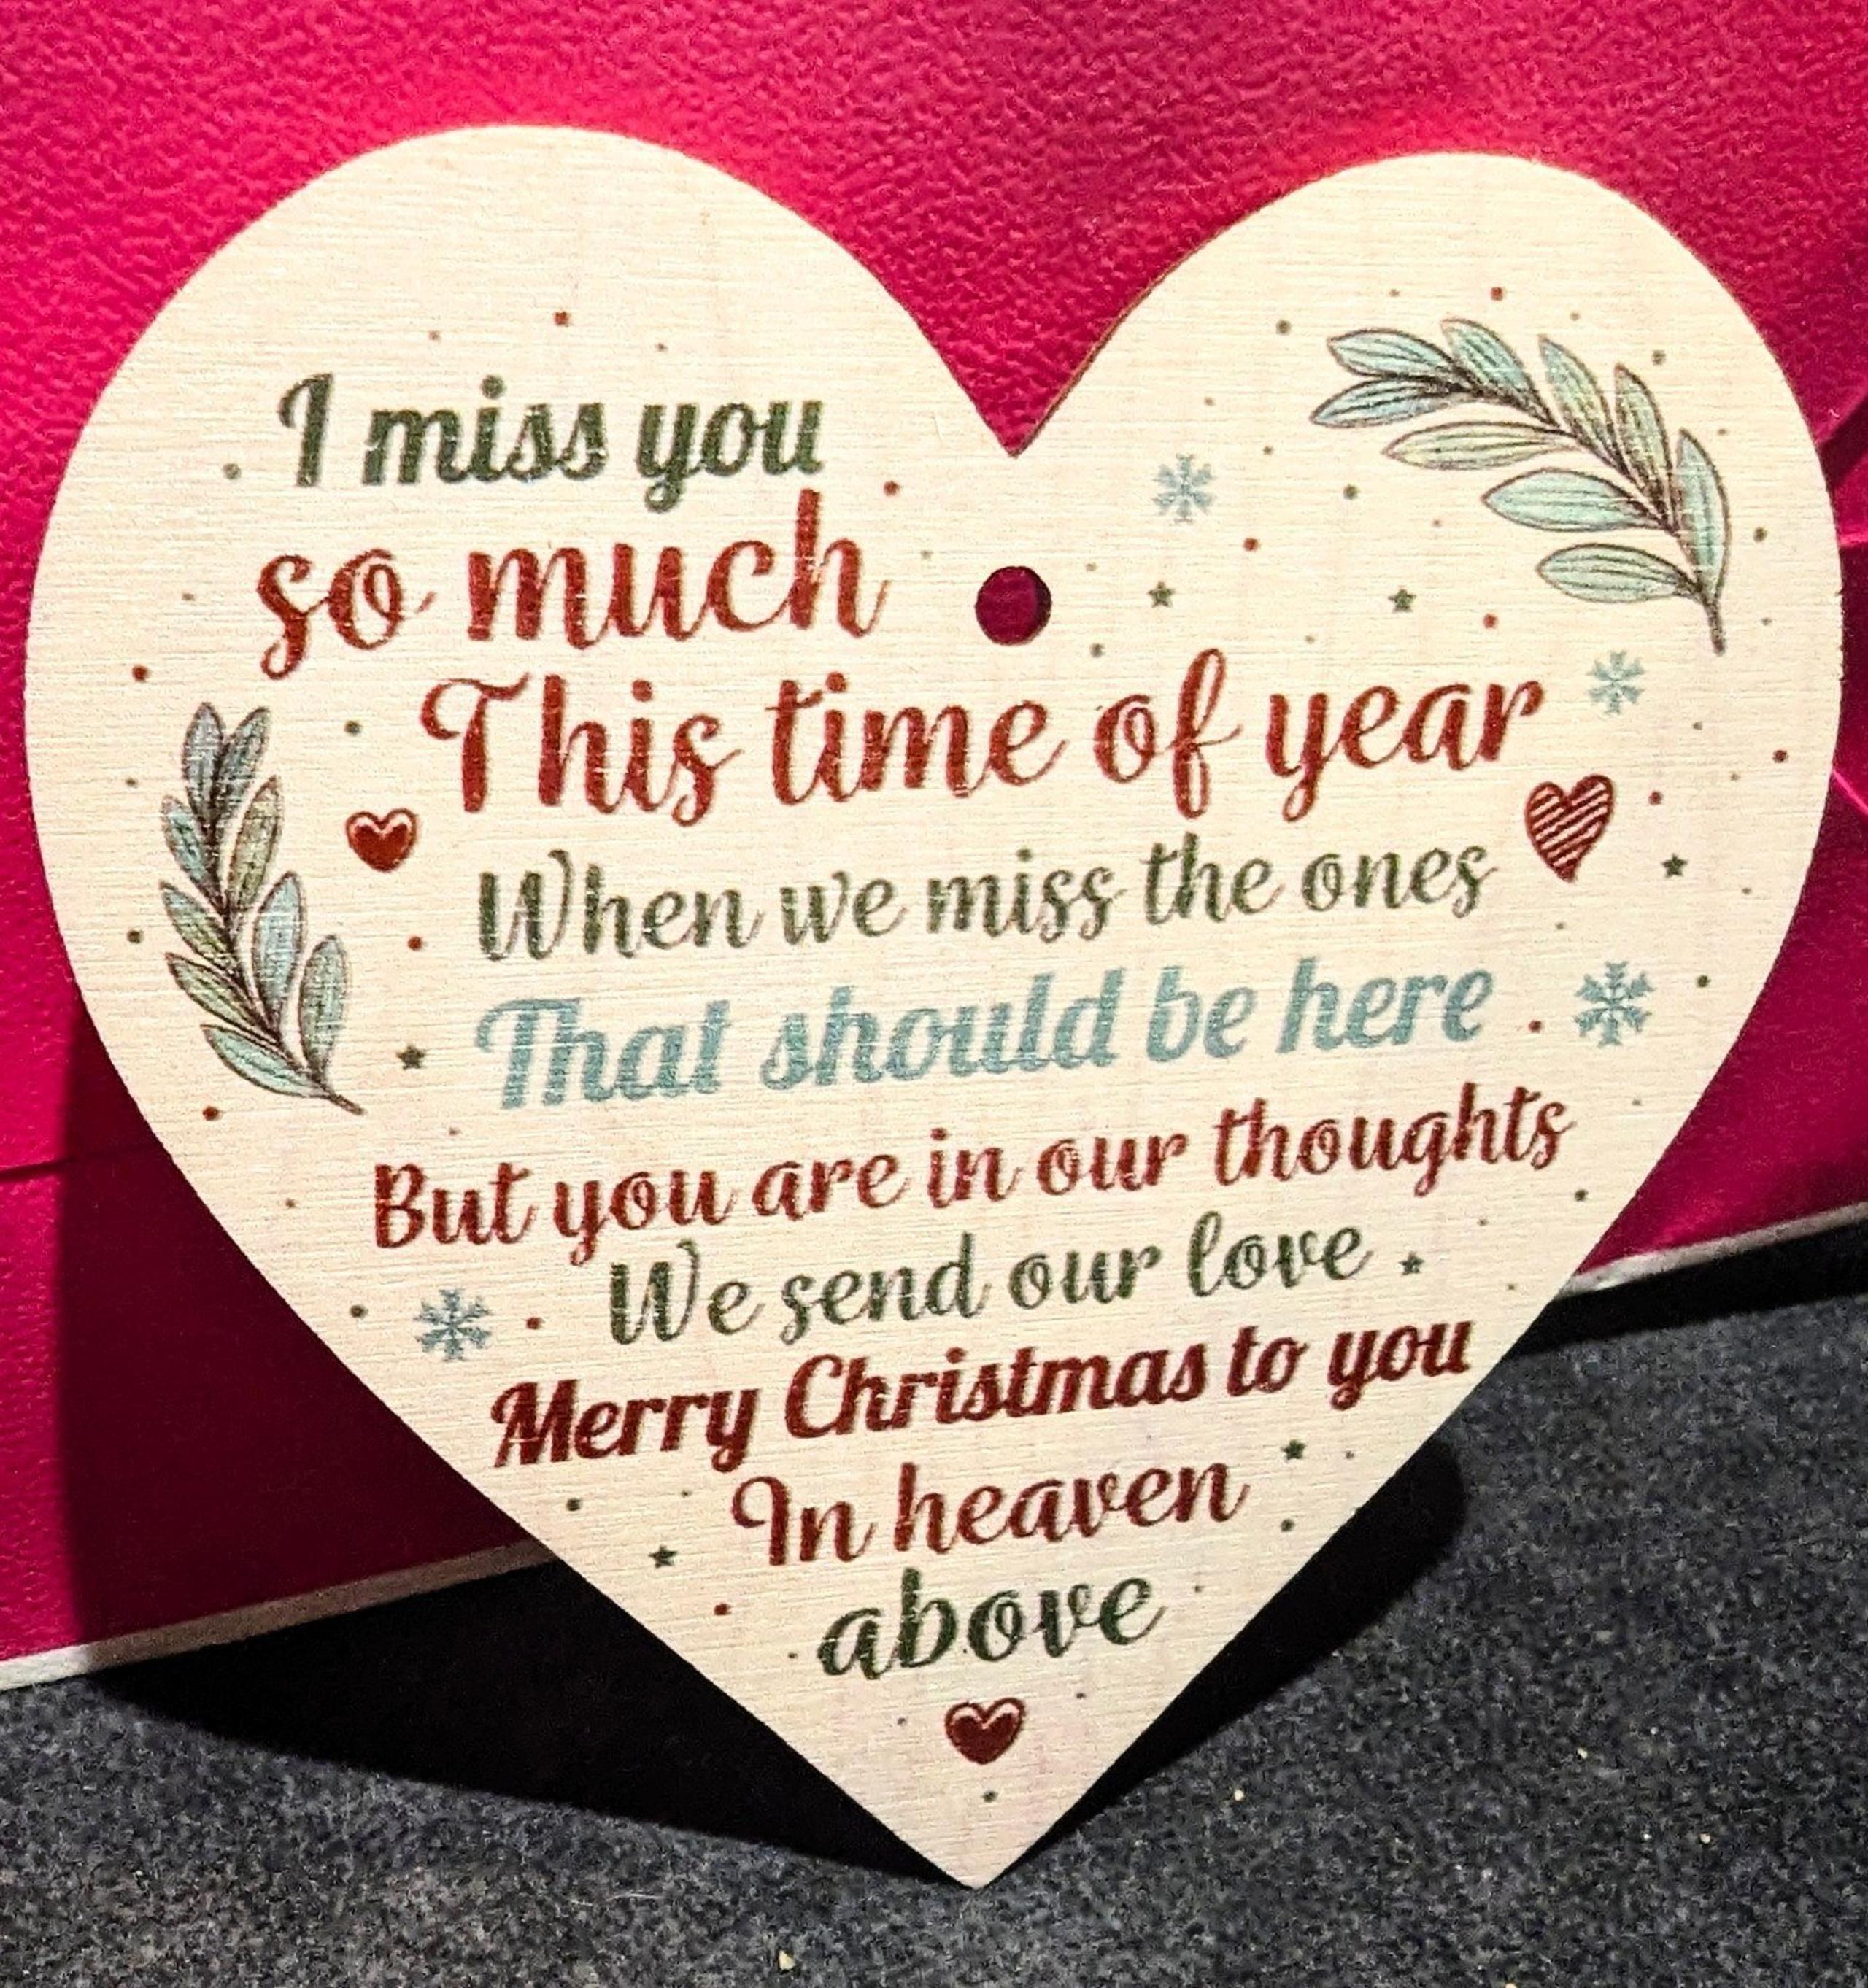 I miss you
so much
This time of year
When we miss the ones
That should be here
But you are in our thoughts
We send our love
Merry Christmas to you
In heaven
above